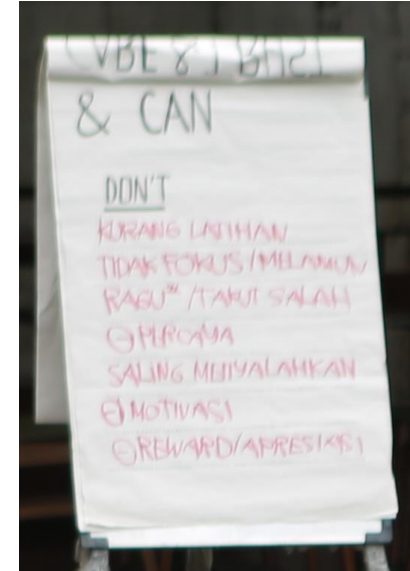 & CAN
DON'T
KURANG LATIHAN
TIDAK FOKUS/MELAMUN
RAGU" /TAKUT SALAH
⊖ PERCAYA
SALING MENYALAHKAN
⊖ MOTIVASI
⊖ REWARD/APRESIASI